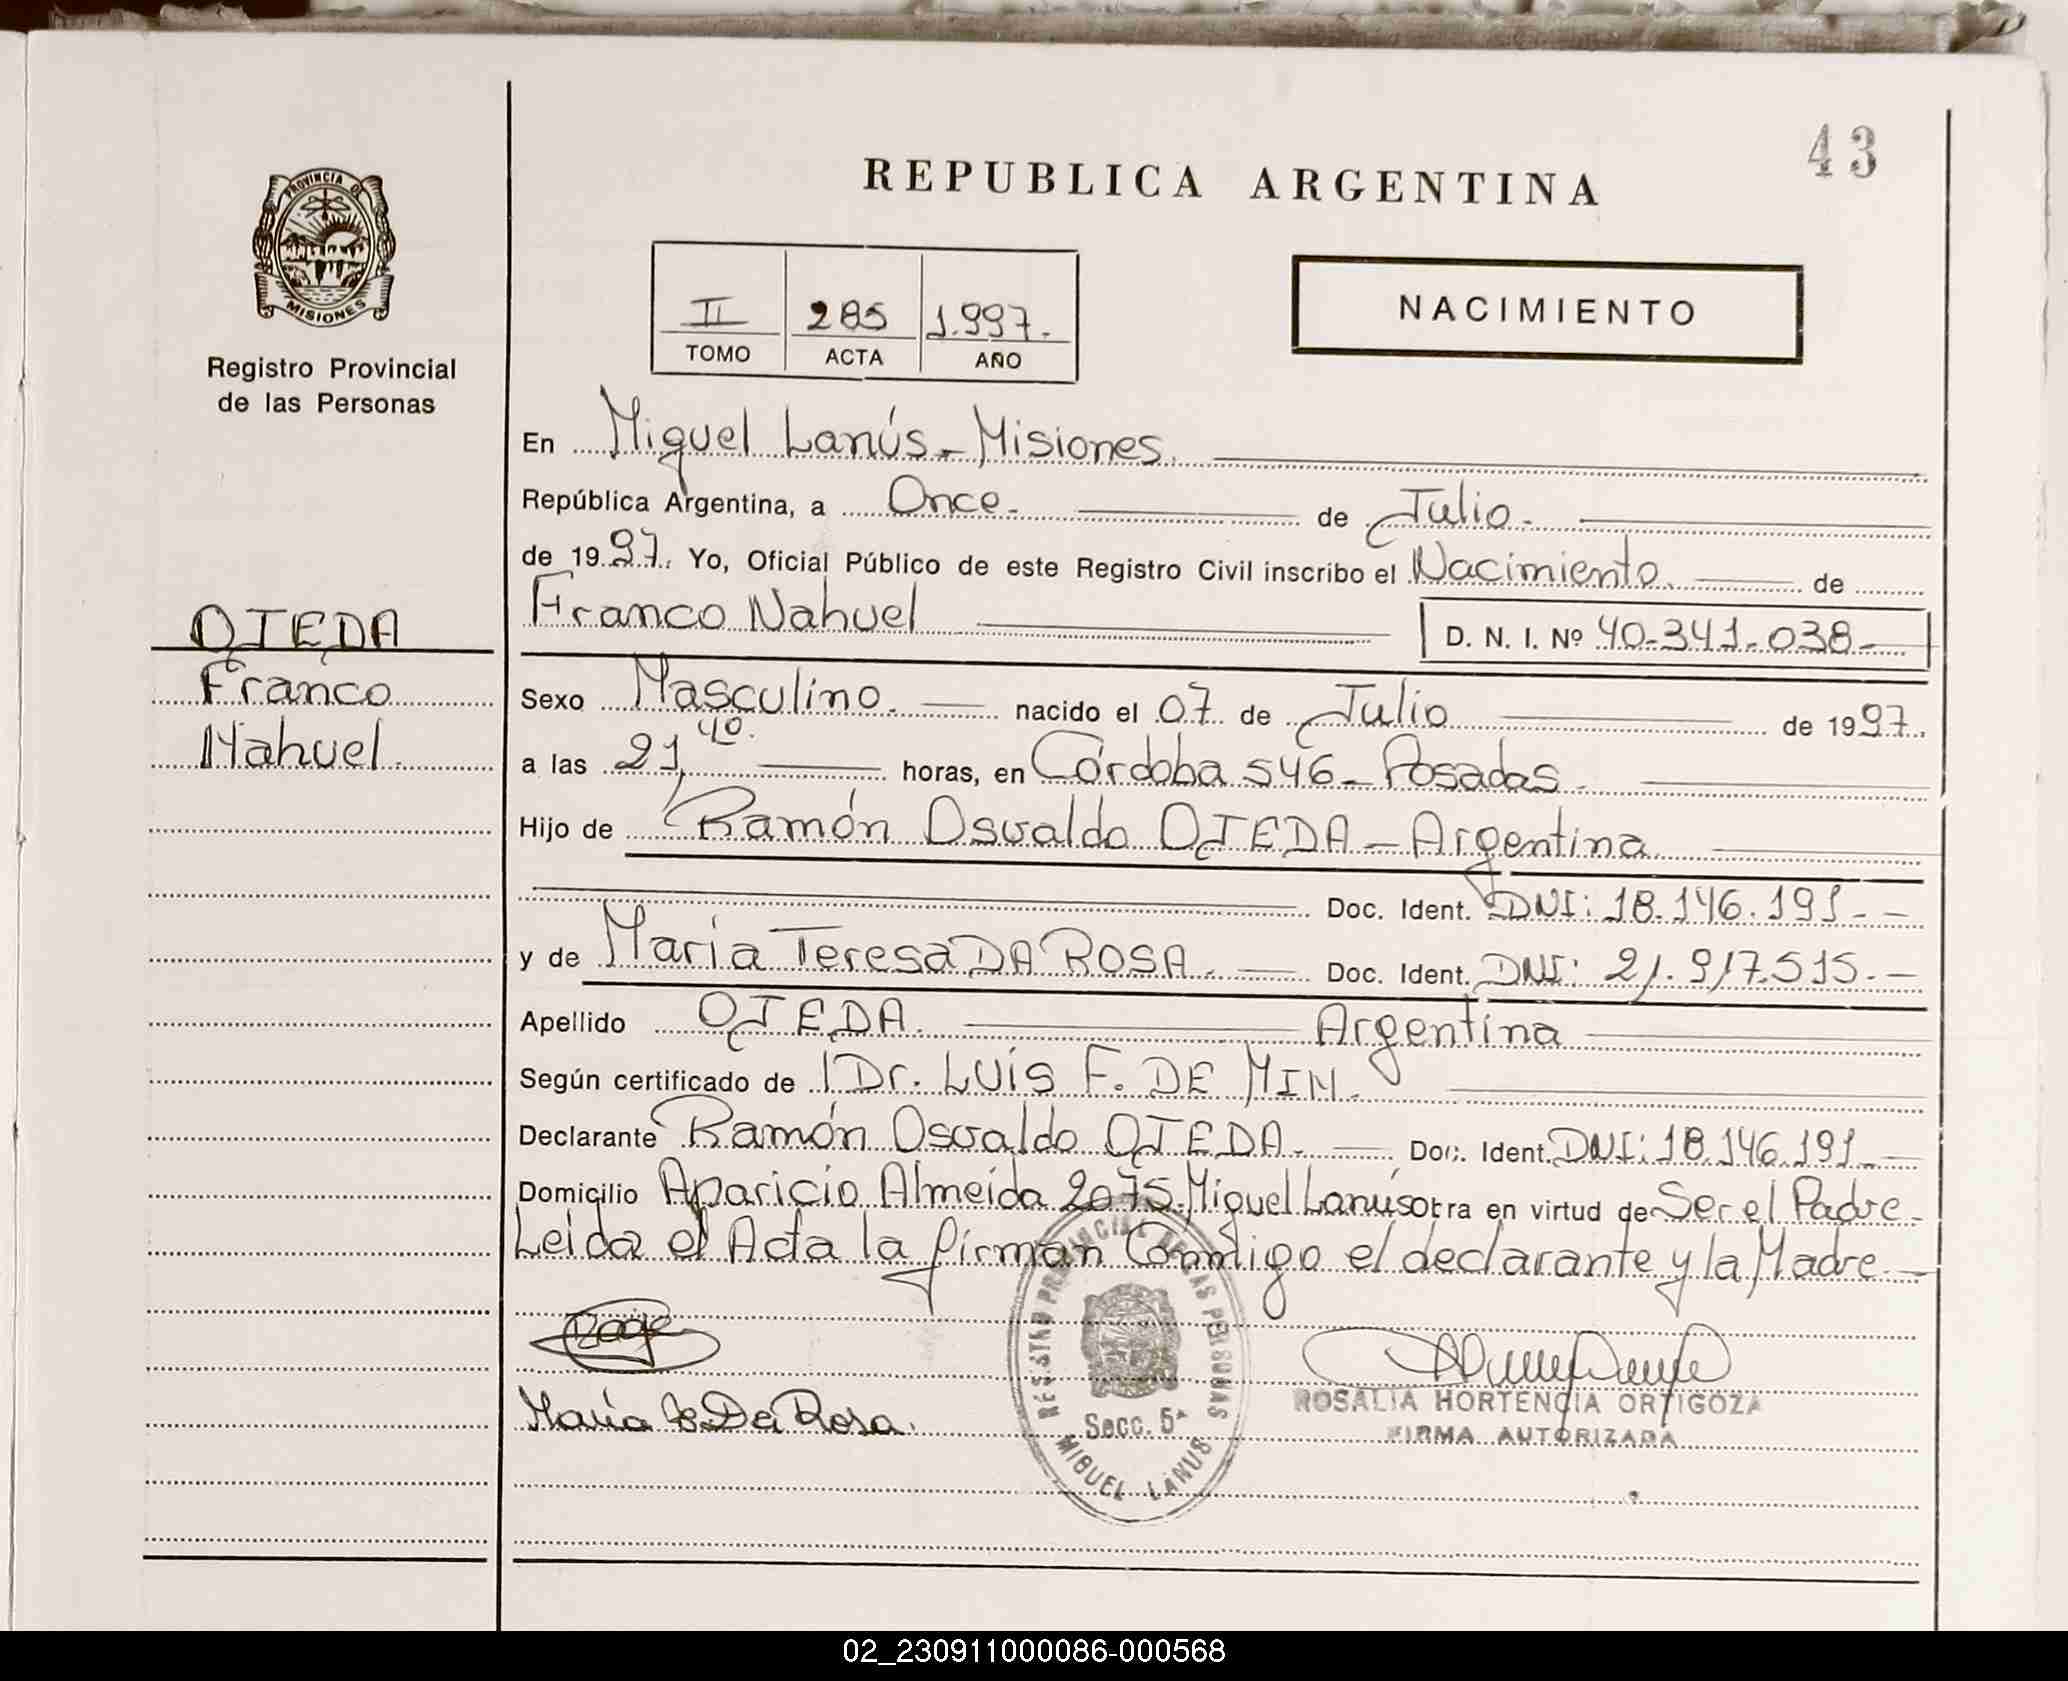 43
REPUBLICA ARGENTINA
PROVINCIA DE
MISIONES
Registro Provincial
de las Personas
II 285 1.997.
TOMO ACTA AÑO
NACIMIENTO
En Miguel Lanús - Misiones.
República Argentina, a Once. de Julio.
de 1997. Yo, Oficial Público de este Registro Civil inscribo el Nacimiento. de
Franco Nahuel D. N. I. Nº 40-341-038-
OJEDA
Franco
Nahuel.
Sexo Masculino. nacido el 07 de Julio de 1997.
a las 21,40. horas, en Córdoba 546 - Posadas.
Hijo de Ramón Osvaldo OJEDA - Argentina
Doc. Ident. DNI: 18.146.191 - -
y de María Teresa DA ROSA. Doc. Ident. DNI: 21.917.515. -
Apellido OJEDA. Argentina
Según certificado de Dr. LUIS F. DE MIM.
Declarante Ramón Osvaldo OJEDA. Doc. Ident. DNI: 18.146.191 -
Domicilio Aparicio Almeida 2075. Miguel Lanús obra en virtud de Ser el Padre -
Leida el Acta la firman Conmigo el declarante y la Madre -
María T. Da Rosa.
REGISTRO PROVINCIAL DE LAS PERSONAS
Secc. 5ª
MIGUEL LANUS
ROSALIA HORTENCIA ORTIGOZA
FIRMA AUTORIZADA
02_230911000086-000568